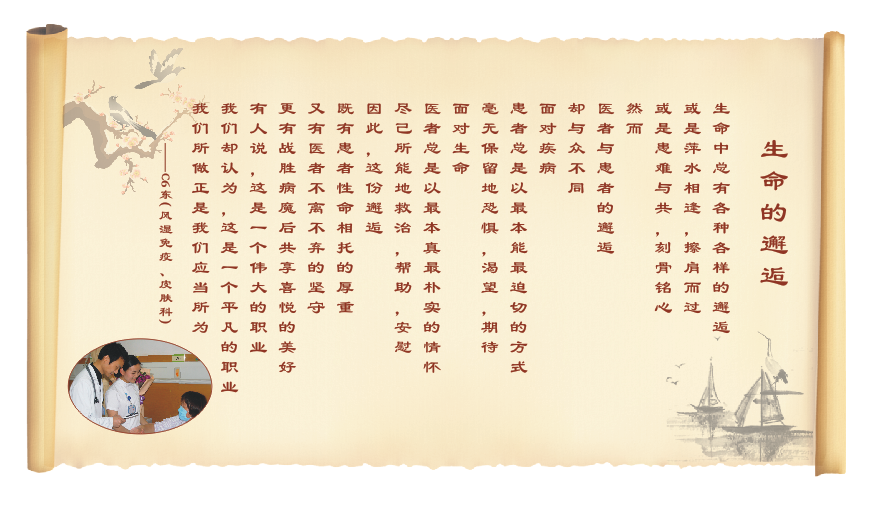 生命的邂逅
生命中总有各种各样的邂逅
或是萍水相逢，擦肩而过
或是患难与共，刻骨铭心
然而
医者与患者的邂逅
却与众不同
面对疾病
患者总是以最本能最迫切的方式
毫无保留地恐惧，渴望，期待
面对生命
医者总是以最本真最朴实的情怀
尽己所能地救治，帮助，安慰
因此，这份邂逅
既有患者性命相托的厚重
又有医者不离不弃的坚守
更有战胜病魔后共享喜悦的美好
有人说，这是一个伟大的职业
我们却认为，这是一个平凡的职业
我们所做正是我们应当所为
——C6东(风湿免疫、皮肤科)